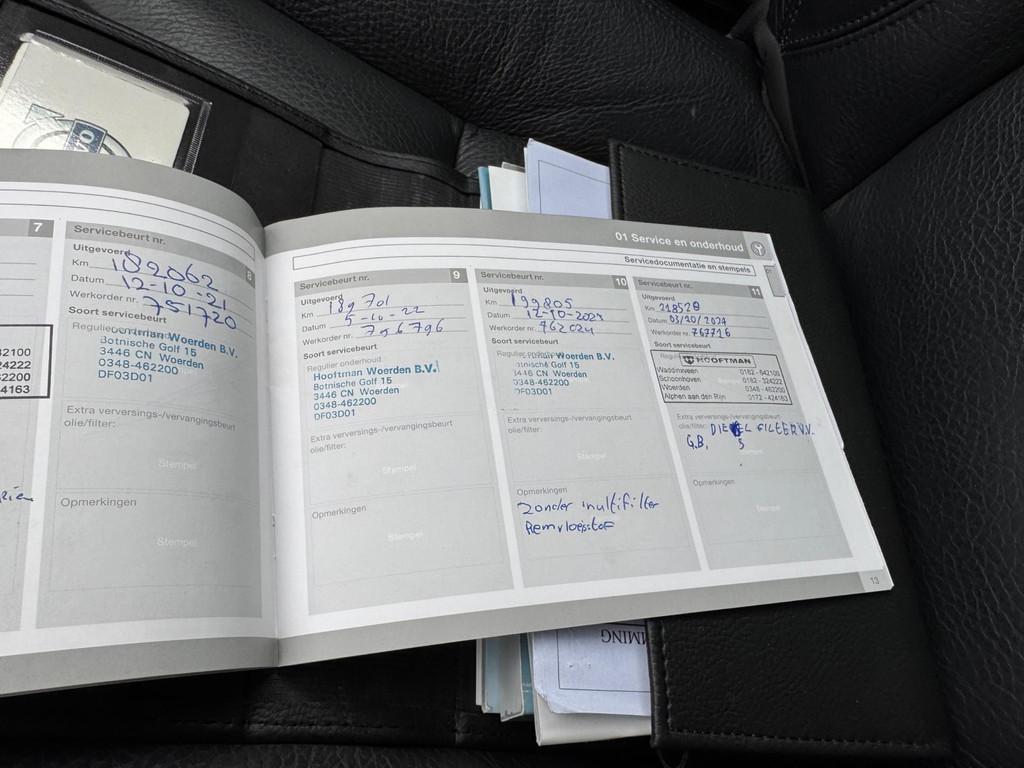 7
2100
24222
32200
4163
Servicebeurt nr. 8
Uitgevoerd
Km 182062
Datum 12-10-21
Werkorder nr. 751720
Soort servicebeurt
Regulier
Hooftman Woerden B.V.
Botnische Golf 15
3446 CN Woerden
0348-462200
DF03D01
Extra verversings-/vervangingsbeurt
olie/filter:
Stempel
Opmerkingen
Stempel
01 Service en onderhoud
Servicedocumentatie en stempels
Servicebeurt nr. 9
Uitgevoerd
Km 189701
Datum 5-10-22
Werkorder nr. 756796
Soort servicebeurt
Regulier onderhoud
Hooftman Woerden B.V.
Botnische Golf 15
3446 CN Woerden
0348-462200
DF03D01
Extra verversings-/vervangingsbeurt
olie/filter:
Stempel
Opmerkingen
Stempel
Servicebeurt nr. 10
Uitgevoerd
Km 199805
Datum 12-10-2023
Werkorder nr. 762024
Soort servicebeurt
Regulier onderhoud
Hooftman Woerden B.V.
Botnische Golf 15
3446 CN Woerden
0348-462200
DF03D01
Extra verversings-/vervangingsbeurt
olie/filter:
Stempel
Opmerkingen
Zonder multifilter
Remvloeistof
Servicebeurt nr. 11
Uitgevoerd
Km 218528
Datum 03/10/2024
Werkorder nr. 767716
Soort servicebeurt
HOOFTMAN
Waddinxveen 0182-642100
Schoonhoven 0182-324222
Woerden 0348-462200
Alphen aan den Rijn 0172-424163
Extra verversings-/vervangingsbeurt
olie/filter: DIESEL FILTER V.V.
G.B. S
Opmerkingen
Stempel
13
MMING